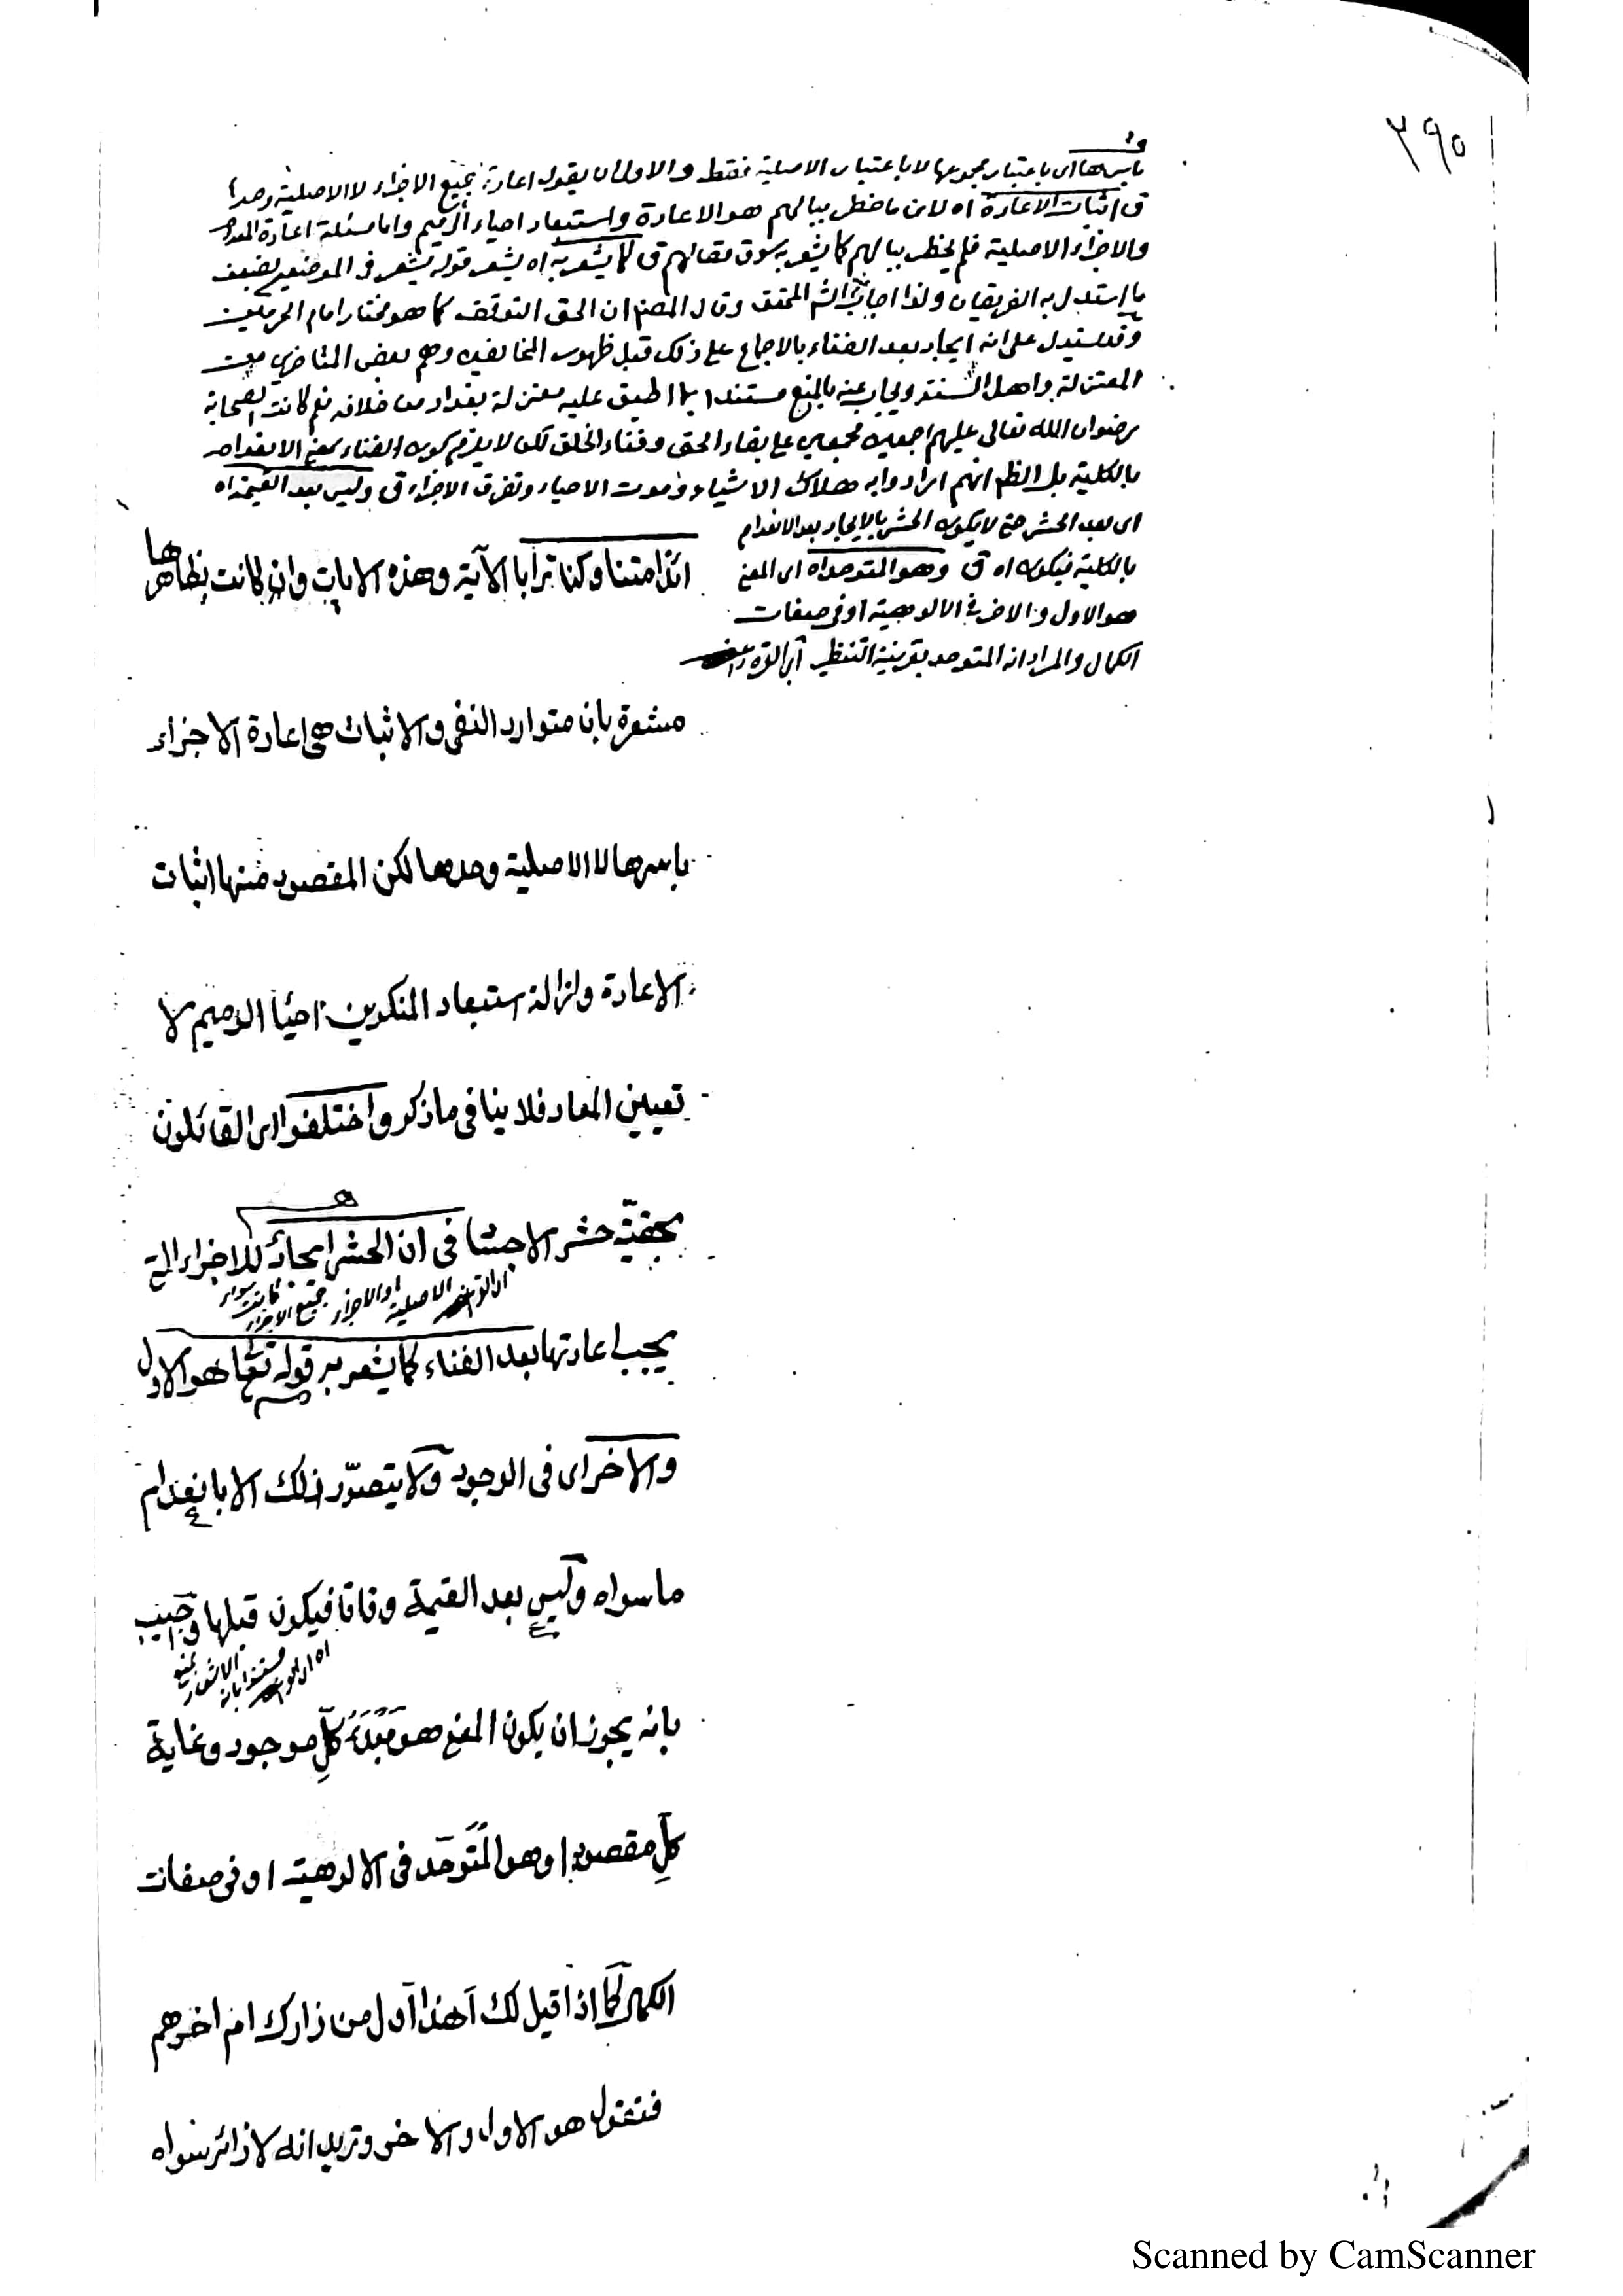 ٣٩٥
باسرها اى باعتبار مجموعها لا باعتبار الاصلية فقط والاولى ان يقول اعادة جميع الاجزاء لا الاصلية وحدها
ق اثبات الاعادة اه لان ما خطر ببالهم هو الاعادة واستبعاد احياء الرميم واما مسئلة اعادة المعدوم
والاجزاء الاصلية فلم يخطر ببالهم كما يشعر به سوق مقالهم ق كما يشعر به اه يشعر قوله يشعر فى الموضعين بضعف
ما استدل به الفريقان ولذا اجاب الش المحقق وقال المصنف ان الحق التوقف كما هو مختار امام الحرمين
وقد يستدل على انه ايجاد بعد الفناء بالاجماع على ذلك قبل ظهور المخالفين وهم بعض المتأخرين من
المعتزلة واهل السنة ويجاب عنه بالمنع مستندا بما اطبق عليه معتزلة بغداد من خلافه نعم كانت الصحابة
رضوان الله تعالى عليهم اجمعين مجمعين على بقاء الحق وفناء الخلق لكن لا يلزم كون الفناء بمعنى الانعدام
بالكلية بل الظ انهم ارادوا به هلاك الاشياء وموت الاحياء وتفرق الاجزاء ق وليس بعد القيمة اه
اى بعد الحشر حتى لا يكون الحشر بالايجاد بعد الانعدام
بالكلية فيكون اه ق وهو المتوحد اه اى المعنى
هو الاول والاخر فى الالوهية او فى صفات
الكمال والمراد انه المتوحد بقرينة التنظير
ائذا متنا وكنا ترابا الآية وهذه الايات وان كانت بظاهرها
مشعرة بان متوارد النفى والاثبات هى اعادة الاجزاء
باسرها لا الاصلية وحدها لكن المقصود منها اثبات
الاعادة وازالة استبعاد المنكرين احياء الرميم لا
تعيين المعاد فلا ينافى ما ذكر واختلفوا اى القائلون
بحقيّة حشر الاجساد فى ان الحشر ايجاد للاجزاء التى
الاصلية او الاجزاء جميع الاجزاء كانت سواء
يجب اعادتها بعد الفناء كما يشعر به قوله تعالى هو الاول
والاخر اى فى الوجود ولا يتصوّر ذلك الا بانعدام
ما سواه وليس بعد القيمة وفاقا فيكون قبلها واجيب
بمنع الاشعار مستندا بانه
بانه يجوز ان يكون المعنى هو مَبْدَءُ كلِّ موجود وغاية
كلِّ مقصود او هو المُتَوحّد فى الالوهية او فى صفات
الكمال كما اذا قيل لك أهذا أول من زارك ام اخرهم
فتقول هو الاول والاخر وتريد انه لا زائر سواه
Scanned by CamScanner